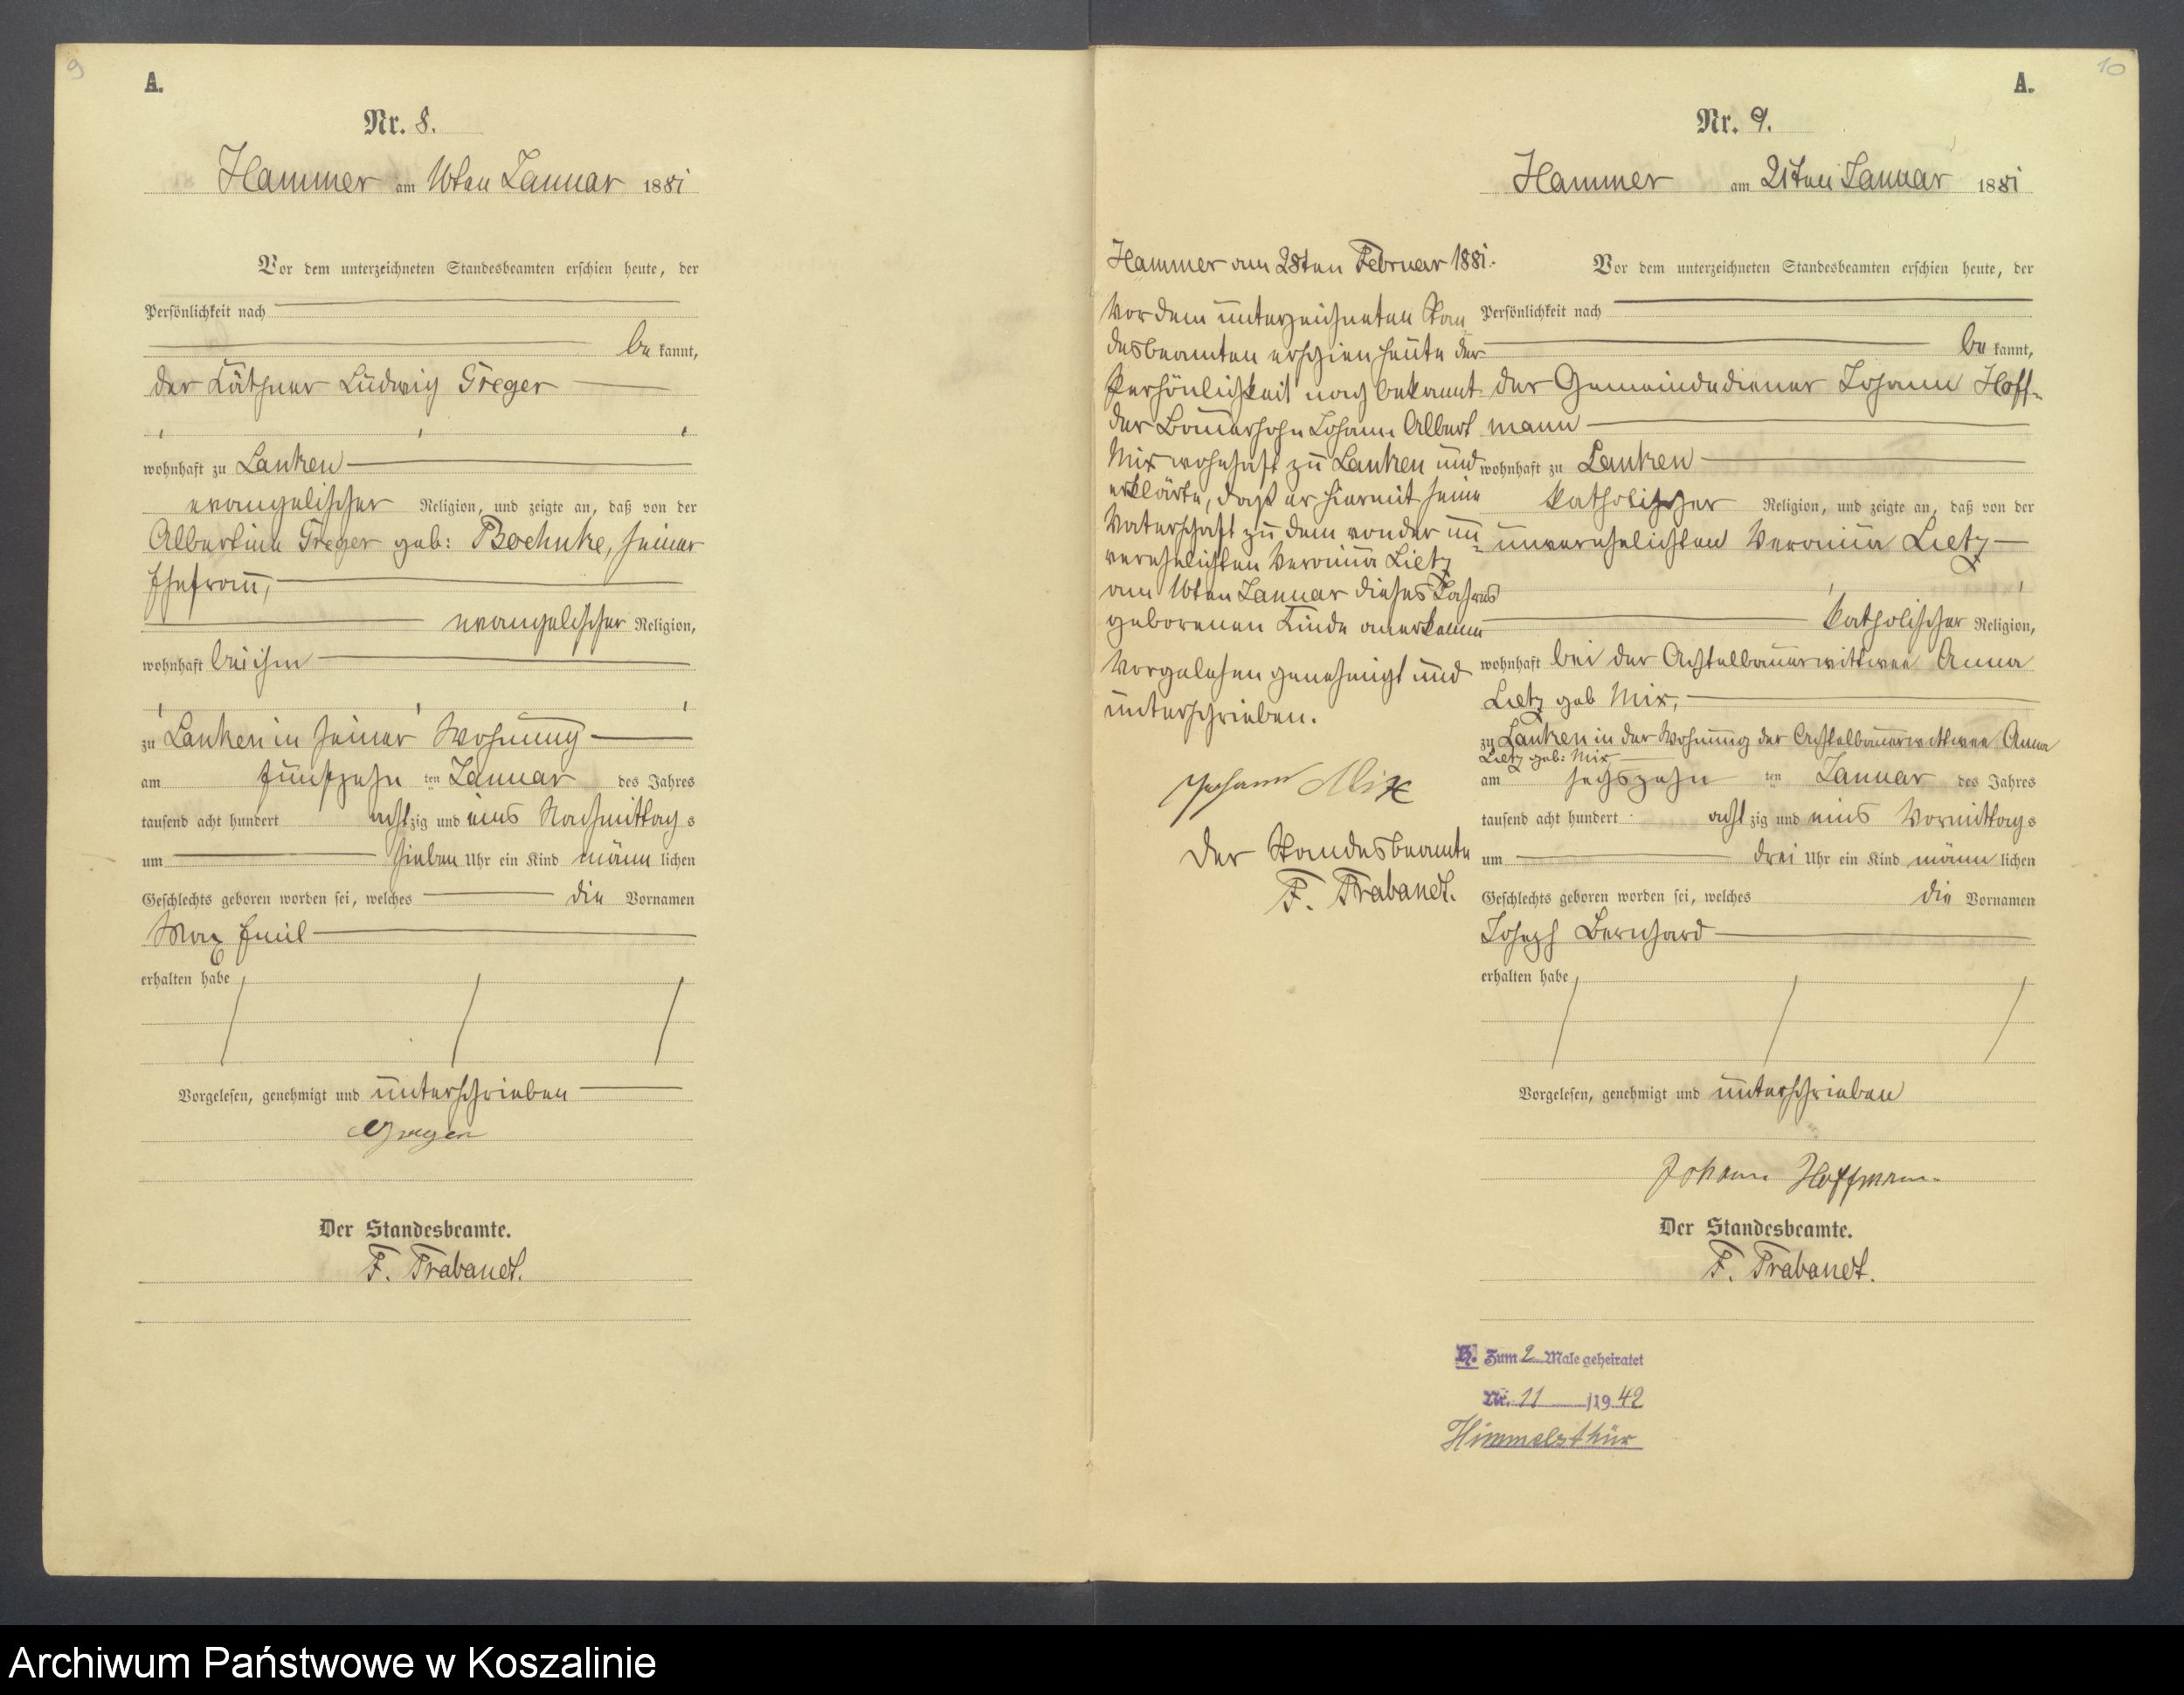 9
A.
Nr. 8.
Hammer am 16ten Januar 1881
Vor dem unterzeichneten Standesbeamten erschien heute, der
Persönlichkeit nach
be kannt,
der Käthner Ludwig Greger
wohnhaft zu Lanken
evangelischer Religion, und zeigte an, daß von der
Albertine Greger geb: Boehnke, seiner
Ehefrau,
evangelischer Religion,
wohnhaft bei ihm
zu Lanken in seiner Wohnung
am fünfzehn ten Januar des Jahres
tausend acht hundert acht zig und eins Nachmittag s
um sieben Uhr ein Kind männ lichen
Geschlechts geboren worden sei, welches die Vornamen
Max Emil
erhalten habe
Vorgelesen, genehmigt und unterschrieben
Greger
Der Standesbeamte.
F. Trabandt.
10
A.
Nr. 9.
Hammer am 21ten Januar 1881
Vor dem unterzeichneten Standesbeamten erschien heute, der
Persönlichkeit nach
be kannt,
der Gemeindediener Johann Hoff-
mann
wohnhaft zu Lanken
katholischer Religion, und zeigte an, daß von der
unverehelichten Veronika Lietz
katholischer Religion,
wohnhaft bei der Achtelbauerwittwee Anna
Lietz geb Mix,
zu Lanken in der Wohnung der Achtelbauerwittwee Anna
Lietz geb: Mix
am sechszehn ten Januar des Jahres
tausend acht hundert acht zig und eins Vormittag s
um drei Uhr ein Kind männ lichen
Geschlechts geboren worden sei, welches die Vornamen
Joseph Bernhard
erhalten habe
Vorgelesen, genehmigt und unterschrieben
Johann Hoffmann.
Der Standesbeamte.
F. Trabandt.
Hammer am 28ten Februar 1881.
Vor dem unterzeichneten Stan
desbeamten erschien heute der
Persönlichkeit nach bekannt
der Bauersohn Johann Albert
Mix wohnhaft zu Lanken und
erklärte, daß er hiermit seine
Vaterschaft zu dem von der un
verehelichten Veronika Lietz
am 16ten Januar dieses Jahres
geborenen Kinde anerkenne
Vorgelesen genehmigt und
unterschrieben.
Johann Mix
Der Standesbeamte
F. Trabandt.
B. Zum 2 Male geheiratet
Nr. 11 /1942
Himmelsthür
Archiwum Państwowe w Koszalinie